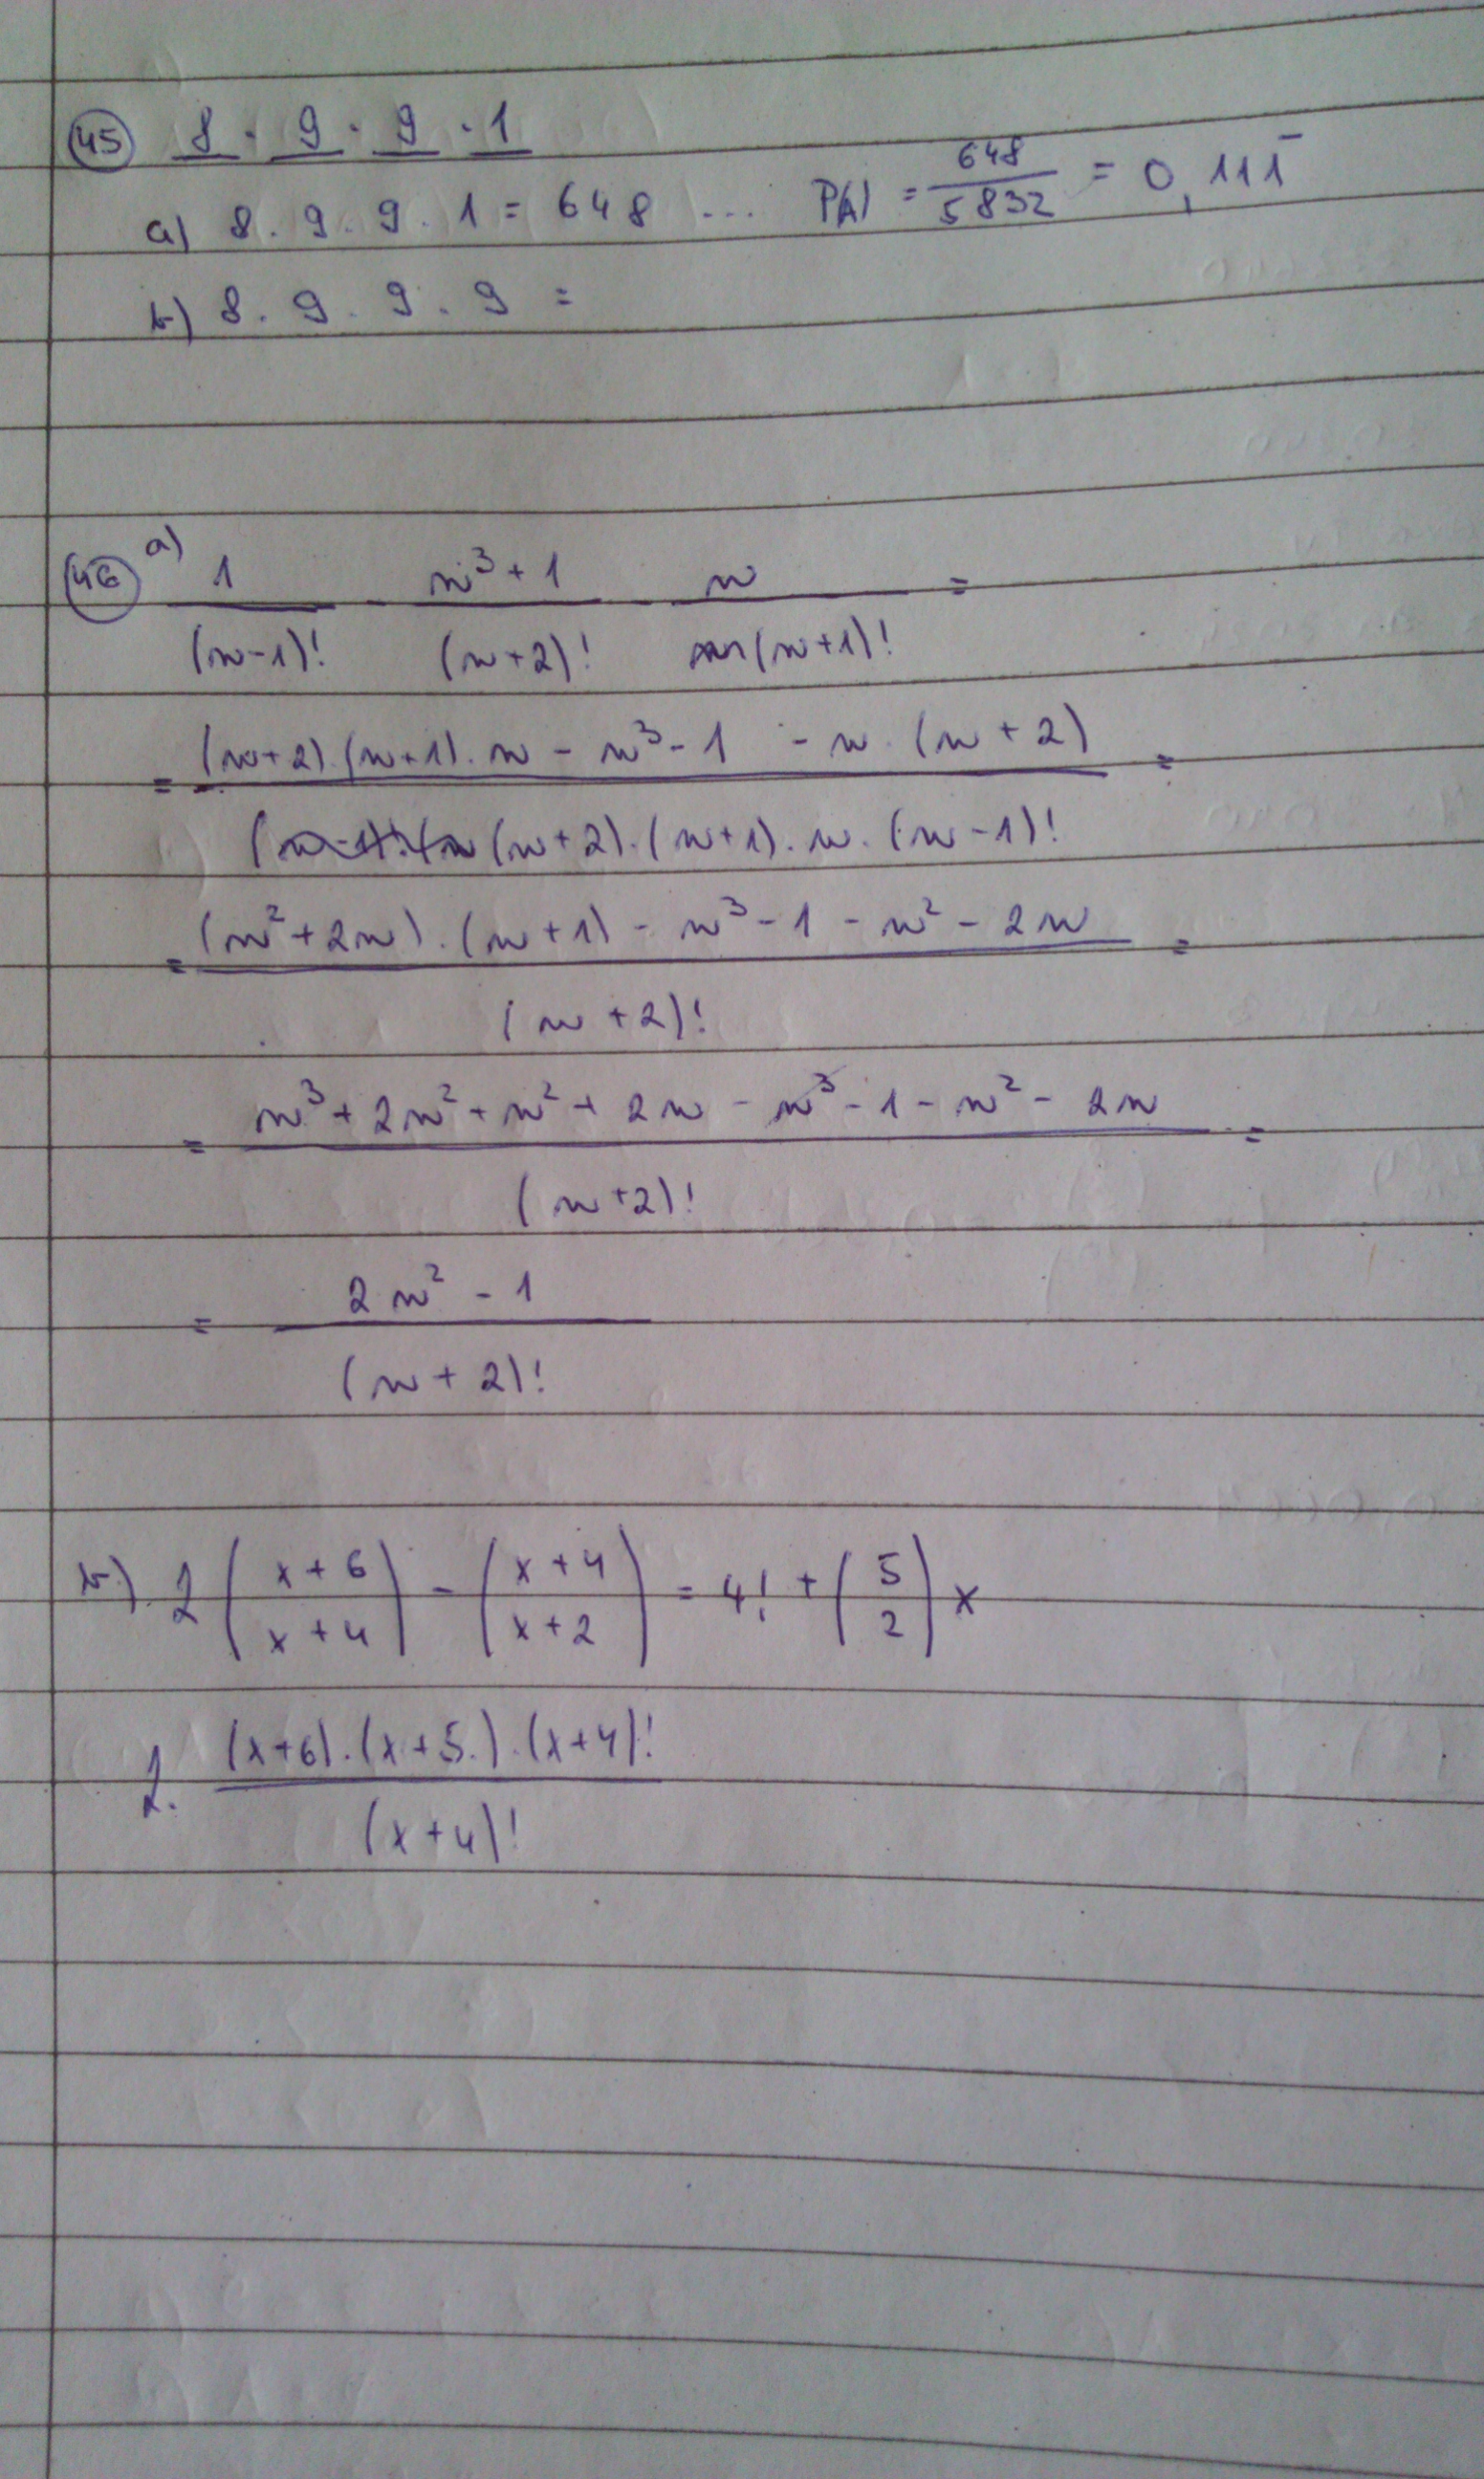 45 8 . 9 . 9 . 1
a) 8 . 9 . 9 . 1 = 648 ... P(A) = 648/5832 = 0,111̅
b) 8 . 9 . 9 . 9 =
46 a) 1/(n-1)! - (n³+1)/(n+2)! - n/(n+1)! =
= ((n+2).(n+1).n - n³ - 1 - n.(n+2))/((n+2).(n+1).n.(n-1)!) =
= ((n²+2n).(n+1) - n³ - 1 - n² - 2n)/(n+2)! =
= (n³ + 2n² + n² + 2n - n³ - 1 - n² - 2n)/(n+2)! =
= (2n² - 1)/(n+2)!
b) 2 (x+6 / x+4) - (x+4 / x+2) = 4! + (5 / 2) x
2. ((x+6).(x+5).(x+4)!)/(x+4)!